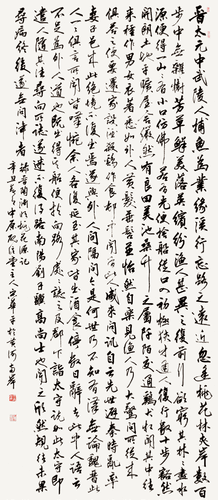 晉太元中武陵人捕魚為業緣溪行忘路之遠近忽逢桃花林夾岸數百
步中無雜樹芳草鮮美落英繽紛漁人甚異之復前行欲窮其林林盡水
源便得一山山有小口仿佛若有光便舍船從口入初極狹才通人復行數十步豁然
開朗土地平曠屋舍儼然有良田美池桑竹之屬阡陌交通雞犬相聞其中往
來種作男女衣著悉如外人黃髮垂髫並怡然自樂見漁人乃大驚問所從
來具答之便要還家設酒殺雞作食村中聞有此人咸來問訊自云先世避秦時亂率
妻子邑人來此絕境不復出焉遂與外人間隔問今是何世乃不知有漢無論魏晉此
人一一為具言所聞皆嘆惋餘人各復延至其家皆出酒食停數日辭去此中人語云
不足為外人道也既出得其船便扶向路處處志之及郡下詣太守說如此太守即
遣人隨其往尋向所志遂迷不復得路南陽劉子驥高尚士也聞之欣然規往未果
尋病終後遂無問津者 陶淵明桃花源記
中原 主人 於黃河南岸